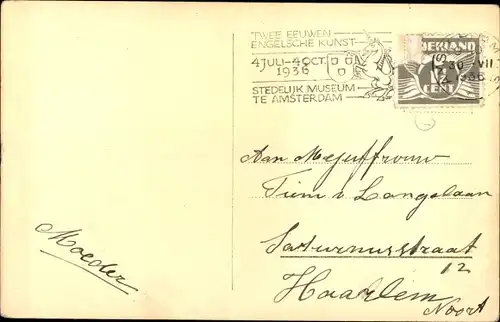 TWEE EEUWEN
ENGELSCHE KUNST
4 JULI-4 OCT.
1936
STEDELIJK MUSEUM
TE AMSTERDAM
NEDERLAND
CENT
30 VII
1936
Aan Mejuffrouw
Langelaan
Saturnusstraat
12
Haarlem
Noort
Moeder